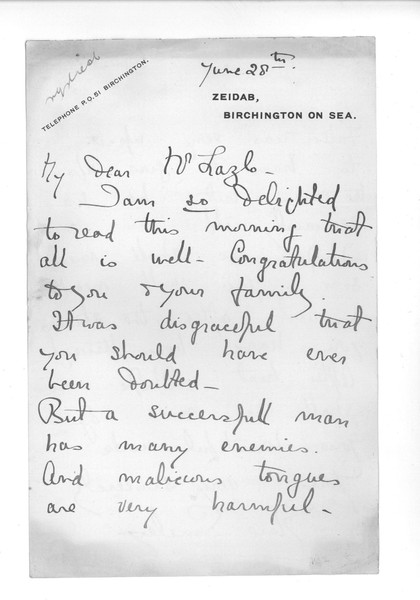 June 28th.
TELEPHONE P.O. 51 BIRCHINGTON.
ZEIDAB,
BIRCHINGTON ON SEA.
My dear Mr Lazlo -
I am so delighted
to read this morning that
all is well - Congratulations
to you & your family.
It was disgraceful that
you should have ever
been doubted -
But a successfull man
has many enemies.
And malicious tongues
are very harmful -